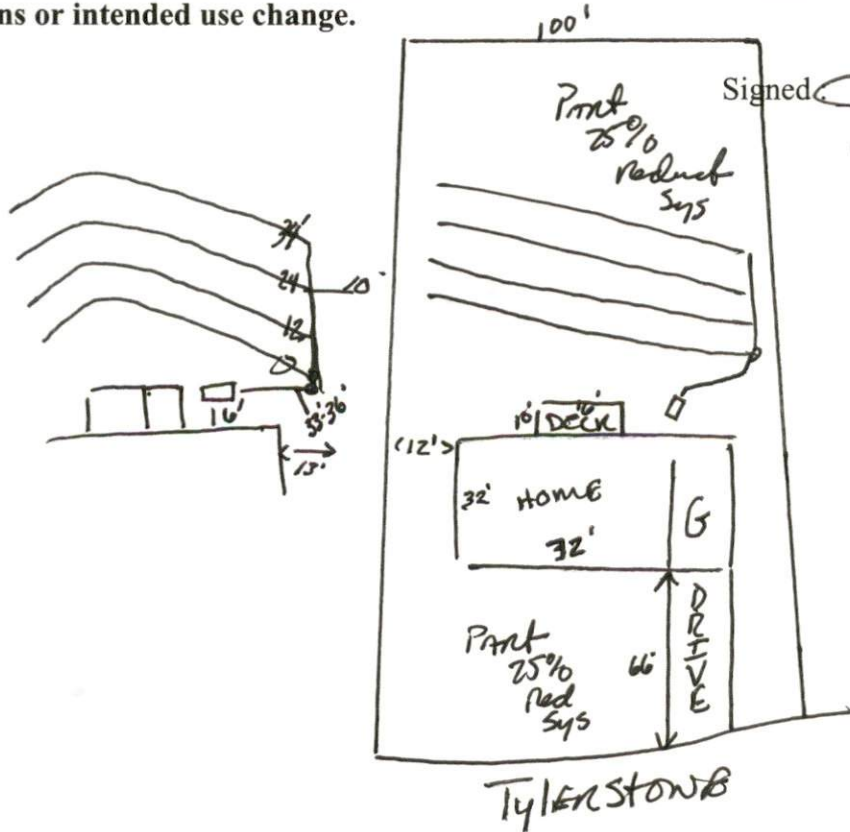 ns or intended use change.
100'
Signed:
Part
25%
Reduct
Sys
34'
24
10'
12
0
16'
33'-36'
13'
10'
16'
DECK
(12')
32' HOME
32'
G
DRIVE
66'
PART
25%
Red
Sys
TylERSTONE